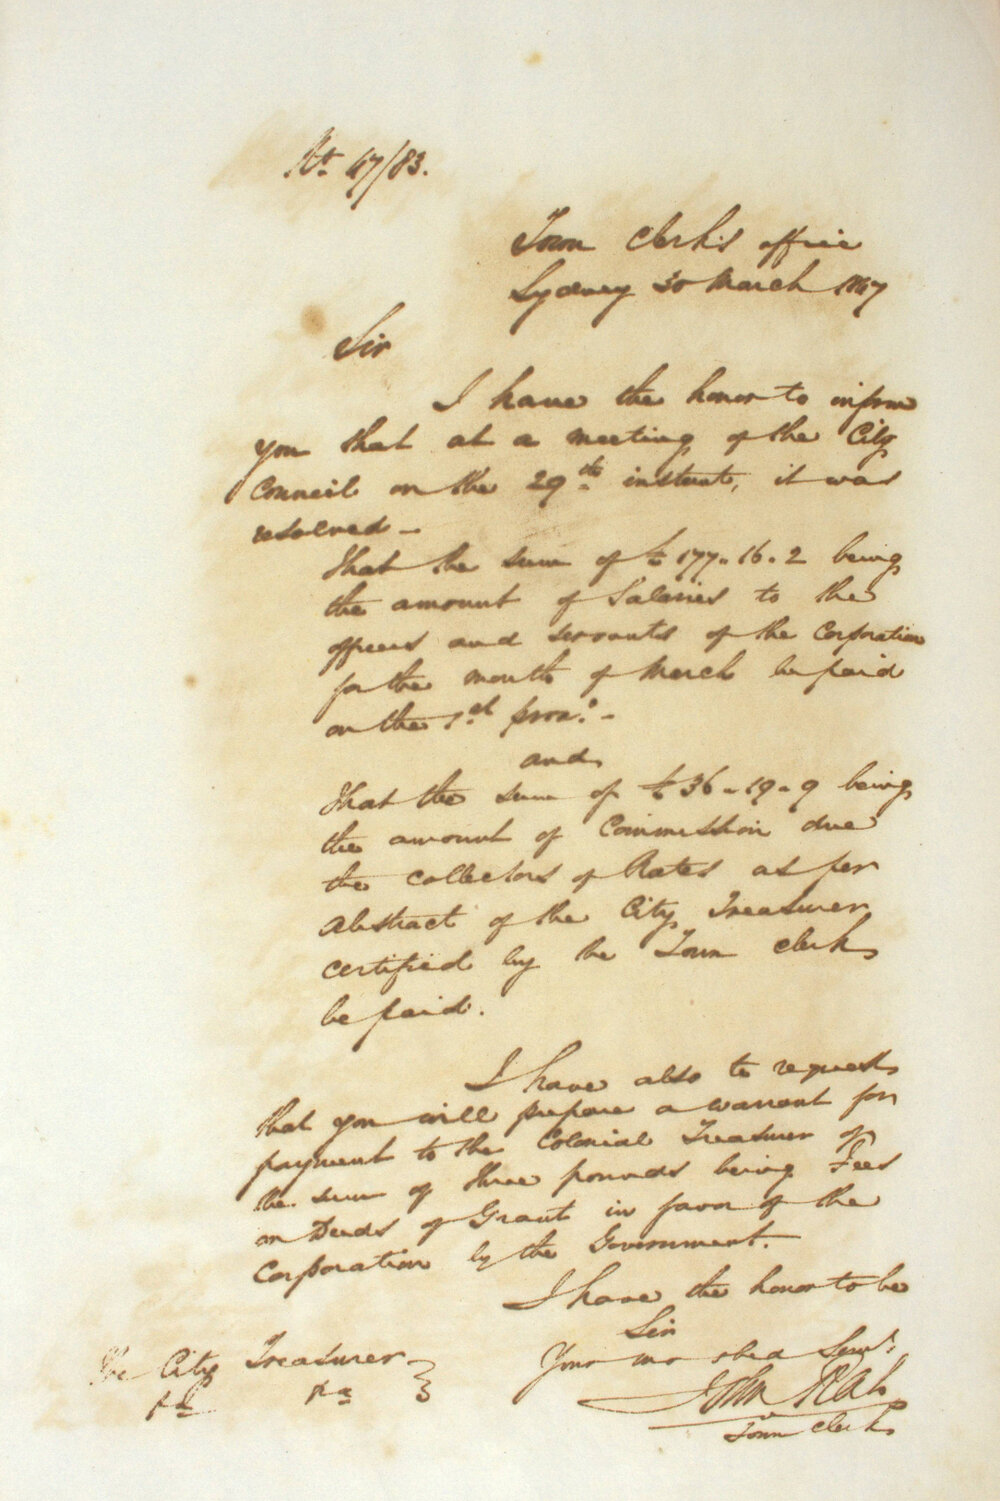 No. 47/83.
Town Clerk's office
Sydney 30 March 1847
Sir
I have the honor to inform
you that at a meeting of the City
Council on the 29th instant, it was
resolved -
That the sum of £177.16.2 being
the amount of Salaries to the
officers and servants of the Corporation
for the month of March be paid
on the 1st proxo. -
and
That the sum of £36-19-9 being
the amount of Commission due
the collectors of Rates as per
Abstract of the City Treasurer
certified by the Town Clerk
be paid.
I have also to request
that you will prepare a warrant for
payment to the Colonial Treasurer of
the sum of three pounds being Fees
on Deeds of Grant in favor of the
Corporation by the Government.
I have the honor to be
Sir
Your mo obed Servt.
The City Treasurer
John
Town Clerk